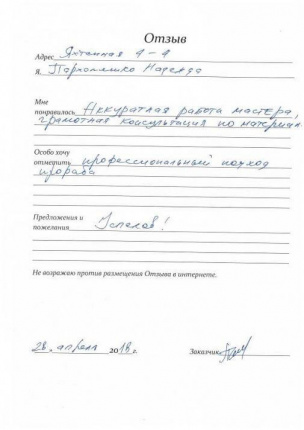 Отзыв
Адрес Яхтенная 4-4
Я, Пархоменко Надежда
Мне
понравилось Аккуратная работа мастера,
грамотная консультация по материал.
Особо хочу
отметить профессиональный подход
прораба
Предложения и
пожелания Успехов!
Не возражаю против размещения Отзыва в интернете.
28. апреля 2018 г. Заказчик